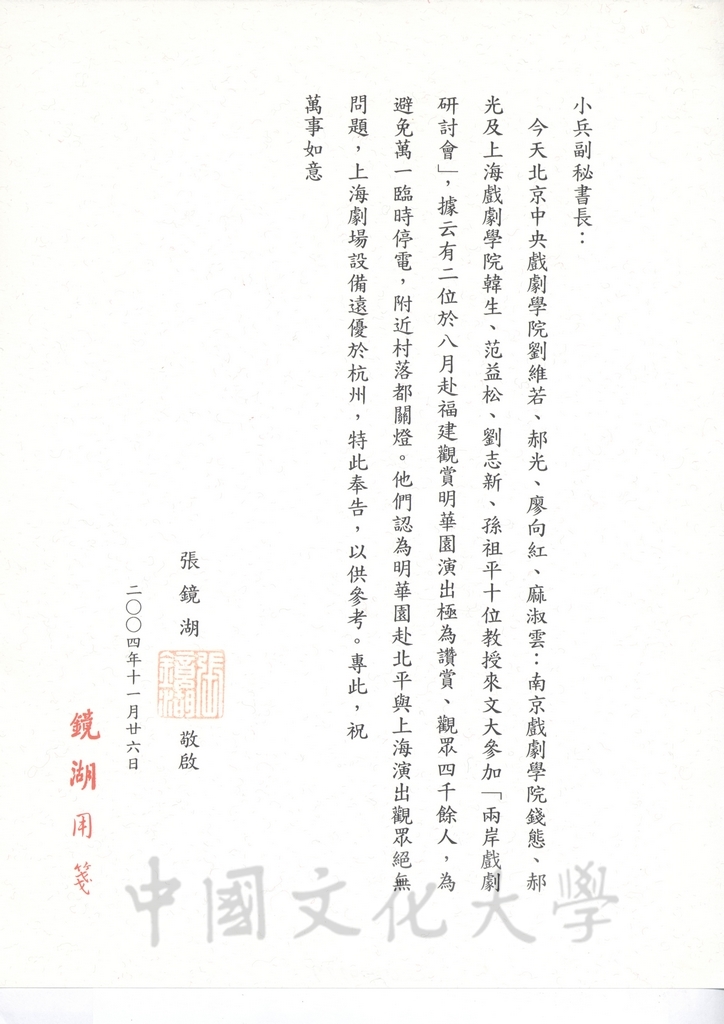 小兵副秘書長：
今天北京中央戲劇學院劉維若、郝光、廖向紅、麻淑雲：南京戲劇學院錢態、郝
光及上海戲劇學院韓生、范益松、劉志新、孫祖平十位教授來文大參加「兩岸戲劇
研討會」，據云有二位於八月赴福建觀賞明華園演出極為讚賞、觀眾四千餘人，為
避免萬一臨時停電，附近村落都關燈。他們認為明華園赴北平與上海演出觀眾絕無
問題，上海劇場設備遠優於杭州，特此奉告，以供參考。專此，祝
萬事如意
張鏡湖
張鏡湖
敬啟
二〇〇四年十一月廿六日
鏡湖用箋
中國文化大學